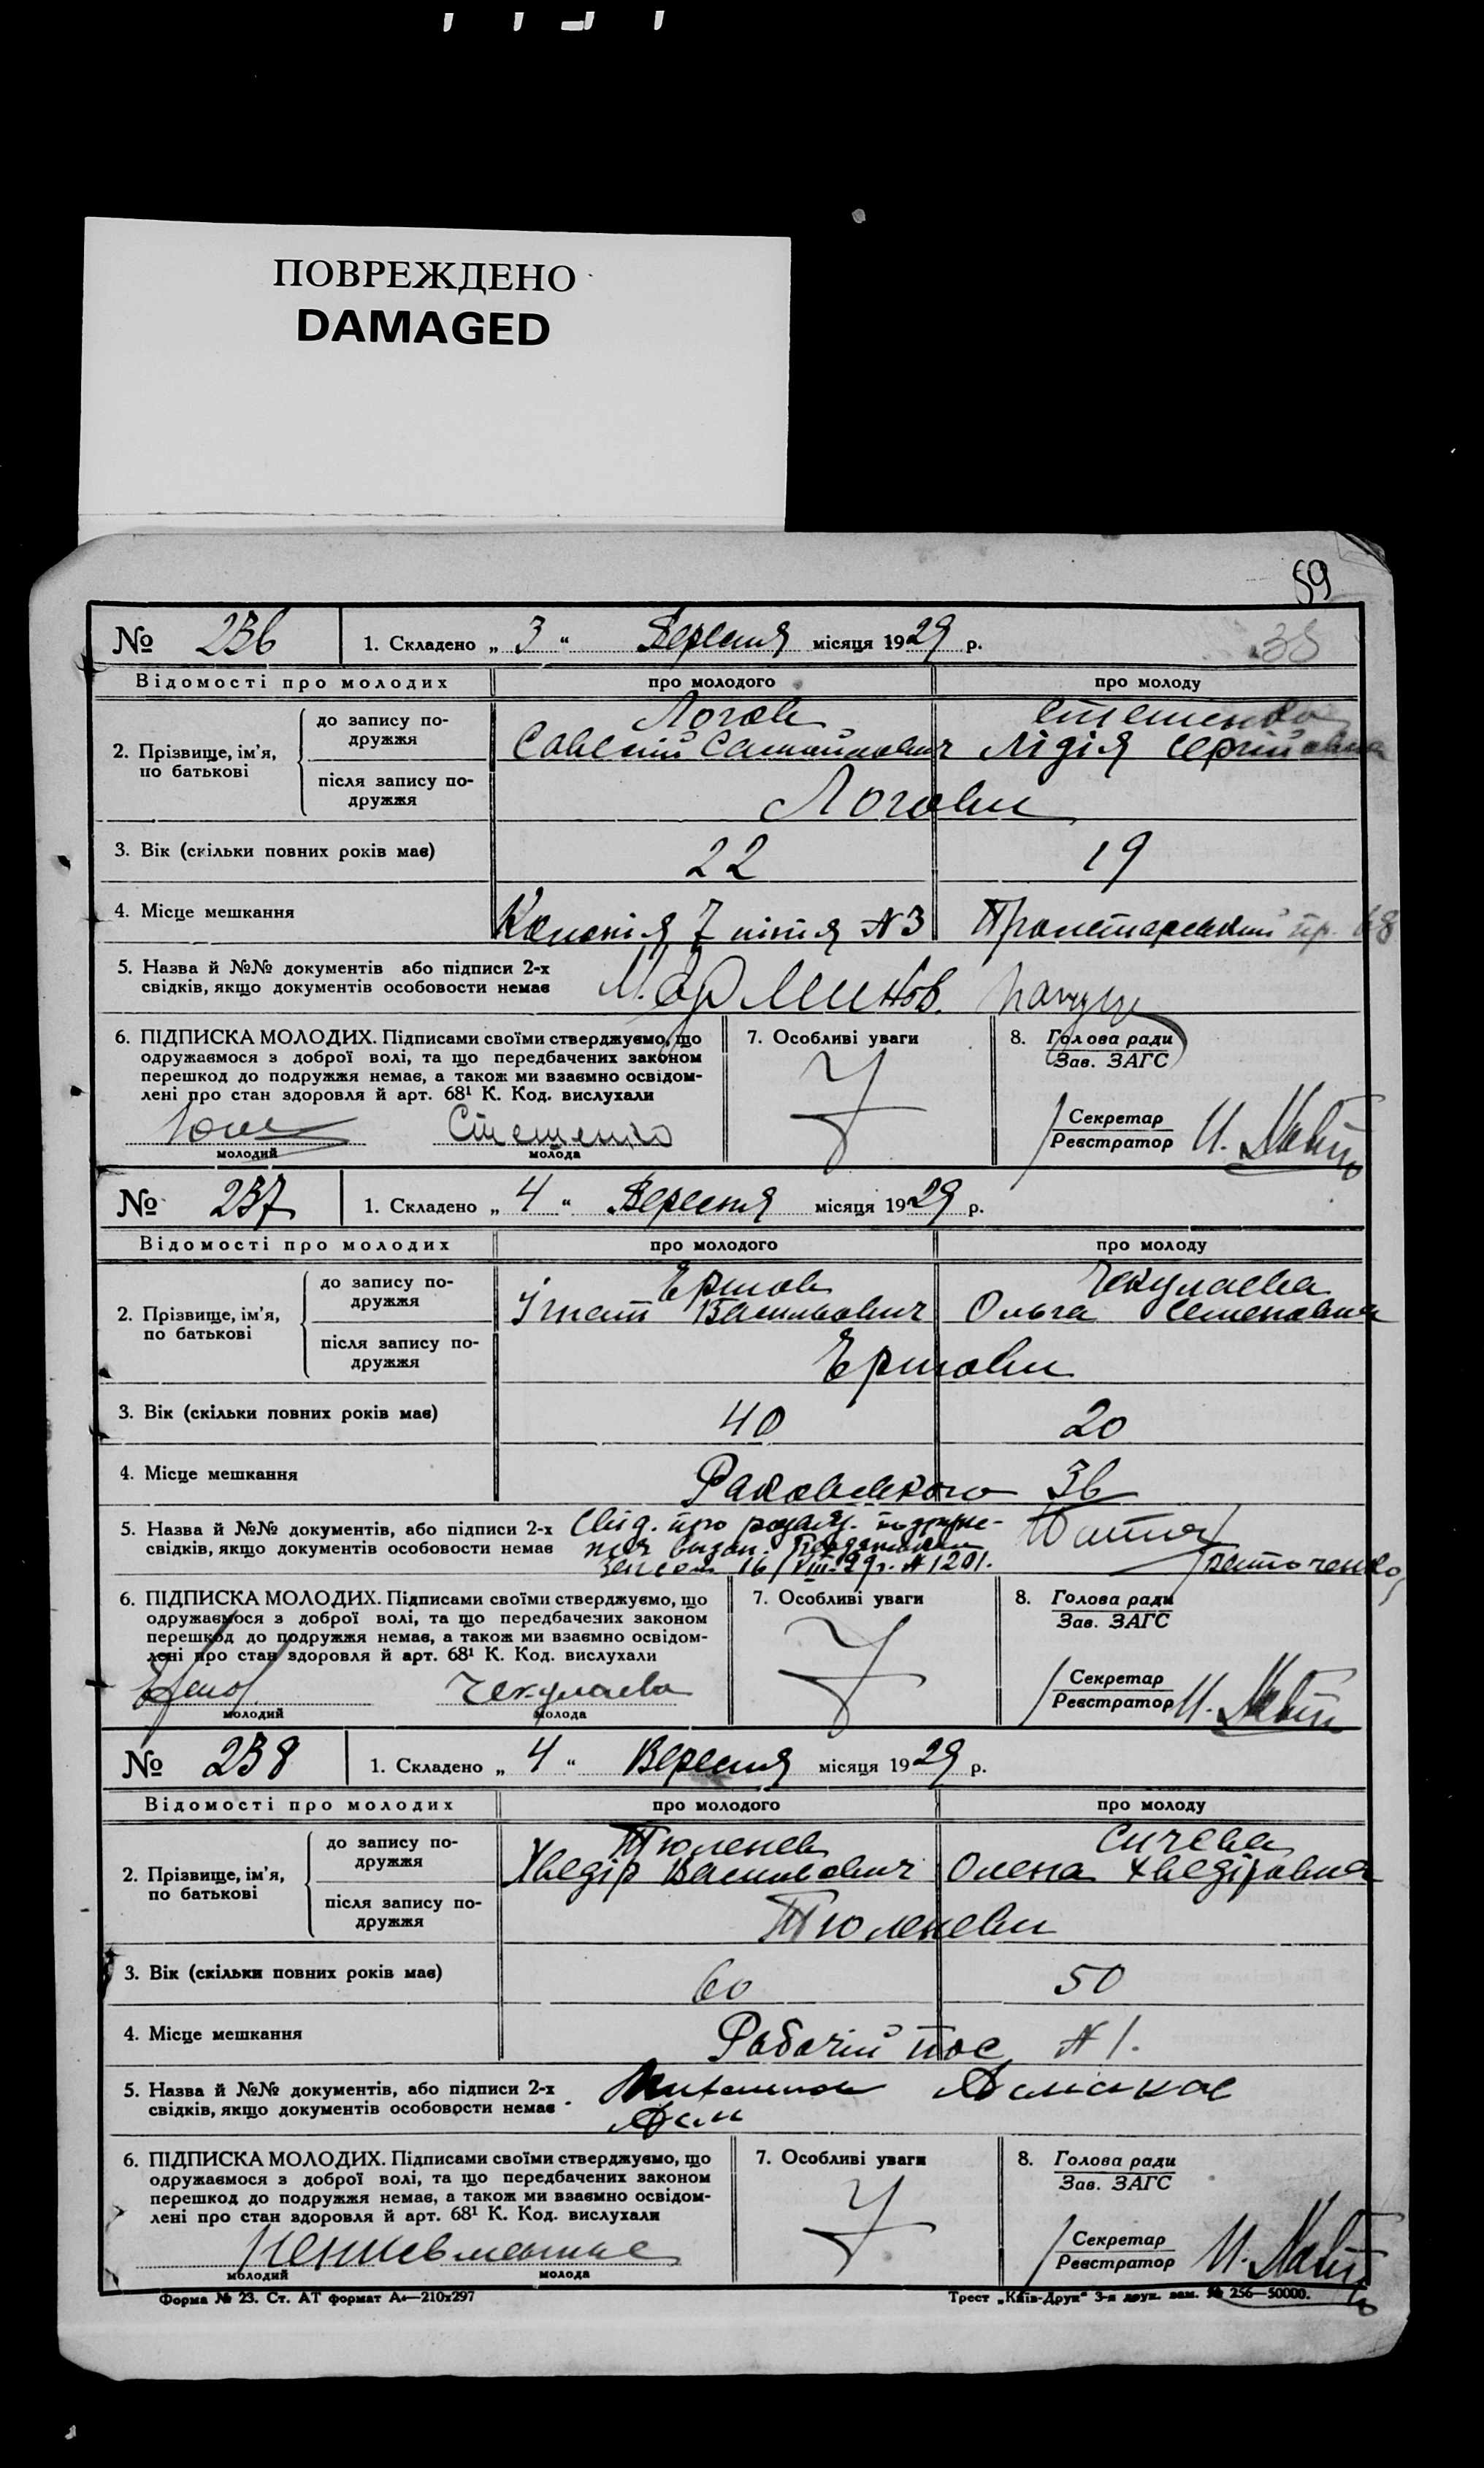 ПОВРЕЖДЕНО
DAMAGED
59
38
№ 236 1. Складено „ 3 “ Вересня місяця 1929 р.
Відомості про молодих про молодого про молоду
2. Прізвище, ім’я, по батькові
до запису подружжя
Логов Стешенко
Савелій Самойлович Лідія Сергіївна
після запису по-
дружжя
Логови
3. Вік (скільки повних років має) 22 19
4. Місце мешкання Колонія 7 лінія N 3 Пролетарський пр. 68
5. Назва й №№ документів або підписи 2-х
свідків, якщо документів особовости немає
6. ПІДПИСКА МОЛОДИХ. Підписами своїми стверджуємо, що
одружаємося з доброї волі, та що передбачених законом
перешкод до подружжя немає, а також ми взаємно освідом-
лені про стан здоровля й арт. 68¹ К. Код. вислухали
Стешенко
молодий молода
7. Особливі уваги
8. Голова ради
Зав. ЗАГС
Секретар
Реєстратор
№ 237 1. Складено „ 4 “ Вересня місяця 1929 р.
Відомості про молодих про молодого про молоду
2. Прізвище, ім’я, по батькові
до запису по-
дружжя
Ершов Чекулаева
Ігнат Васильович Ольга Семеновна
після запису по-
дружжя
Ершови
3. Вік (скільки повних років має) 40 20
4. Місце мешкання Раковського 36
5. Назва й №№ документів, або підписи 2-х
свідків, якщо документів особовости немає
Свід. про 
16/VIII-29р. N 1201.
6. ПІДПИСКА МОЛОДИХ. Підписами своїми стверджуємо, що
одружаємося з доброї волі, та що передбачених законом
перешкод до подружжя немає, а також ми взаємно освідом-
лені про стан здоровля й арт. 68¹ К. Код. вислухали
Чекулаева
молодий молода
7. Особливі уваги
8. Голова ради
Зав. ЗАГС
Секретар
Реєстратор
№ 238 1. Складено „ 4 “ Вересня місяця 1929 р.
Відомості про молодих про молодого про молоду
2. Прізвище, ім’я, по батькові
до запису по-
дружжя
Тюленев Сичева
Хведір Васильович Олена Хведіровна
після запису по-
дружжя
Тюленеви
3. Вік (скільки повних років має) 60 50
4. Місце мешкання Рабочій пос N 1.
5. Назва й №№ документів, або підписи 2-х
свідків, якщо документів особовости немає
6. ПІДПИСКА МОЛОДИХ. Підписами своїми стверджуємо, що
одружаємося з доброї волі, та що передбачених законом
перешкод до подружжя немає, а також ми взаємно освідом-
лені про стан здоровля й арт. 68¹ К. Код. вислухали
молодий молода
7. Особливі уваги
8. Голова ради
Зав. ЗАГС
Секретар
Реєстратор
Форма № 23. Ст. АТ формат А₄—210х297 Трест „Київ-Друк“ 3-я друк. зам. № 256—50000.